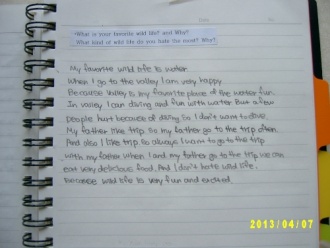 What is your favorite wild life? and Why?
What kind of wild life do you hate the most? Why?
My favorite wild life is water.
When I go to the valley I am very happy.
Because valley is my favourite place of the water fun.
In valley I can diving and fun with water. But a few
people hurt because of diving so I don't want to dive.
My father like trip. so my father go to the trip often.
And also I like trip. so always I want to go to the trip
with my father. when I and my father go to the trip we can
eat very delicious food. And I don't hate wild life.
Because wild life is very fun and excited.
2013/04/07